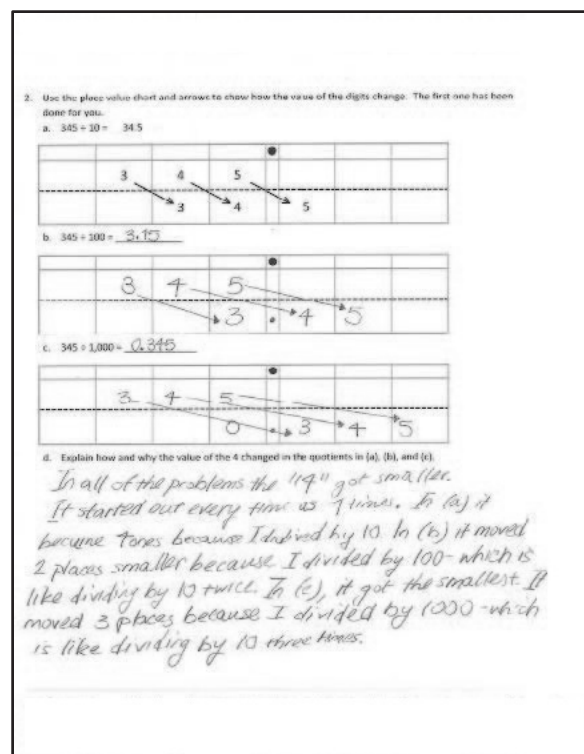 2. Use the place value chart and arrows to show how the value of the digits change. The first one has been
done for you.
a. 345 ÷ 10 = 34.5
3 4 5
3 4 5
b. 345 ÷ 100 = 3.45
3 4 5
3 . 4 5
c. 345 ÷ 1,000 = 0.345
3 4 5
0 . 3 4 5
d. Explain how and why the value of the 4 changed in the quotients in (a), (b), and (c).
In all of the problems the "4" got smaller.
It started out every time as 4 In (a) it
became 4 ones because I divided by 10. In (b) it moved
2 places smaller because I divided by 100 - which is
like dividing by 10 twice. In (c), it got the smallest. It
moved 3 places because I divided by 1000 - which
is like dividing by 10 three times.